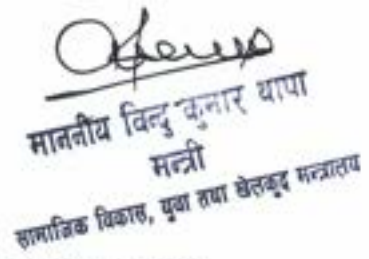 माननीय विन्दु कुमार थापा
मन्त्री
सामाजिक विकास, युवा तथा खेलकूद मन्त्रालय